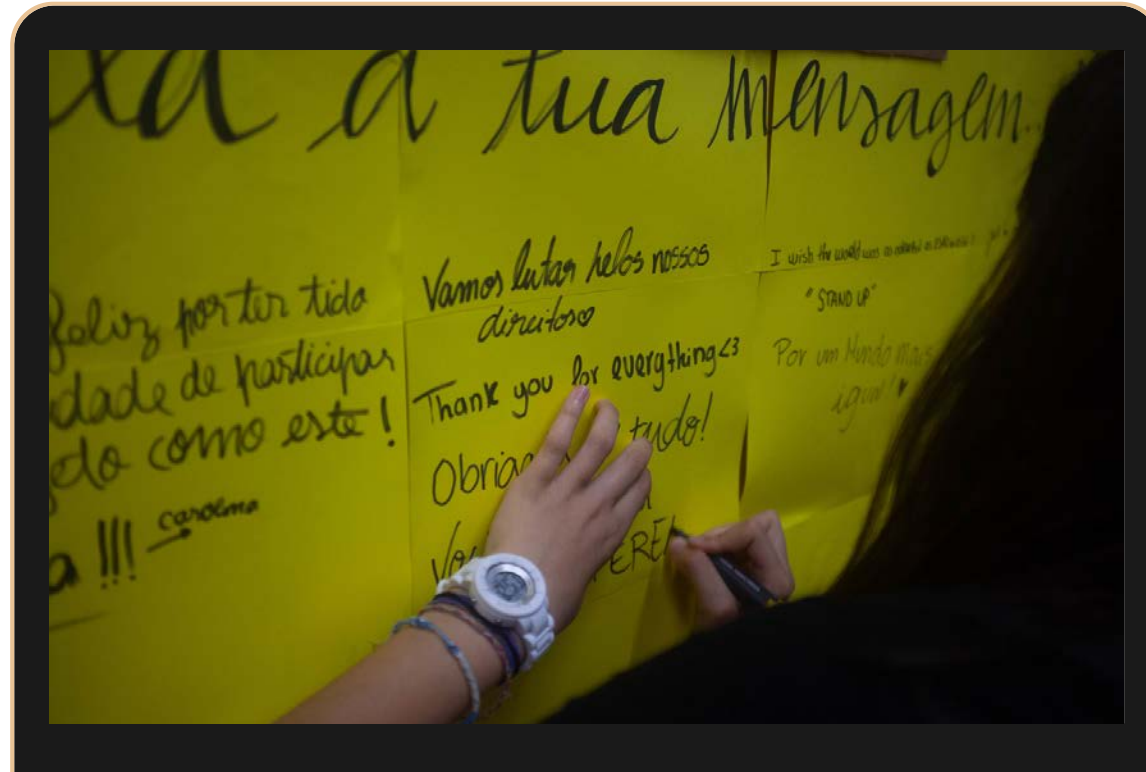 a tua mensagem...
feliz por ter tido
dade de participar
como este!
a !!!
carolina
Vamos lutar pelos nossos
direitos♡
Thank you for everything<3
tudo!
I wish the world was as
"STAND UP"
Por um Mundo mais
igual! ♥